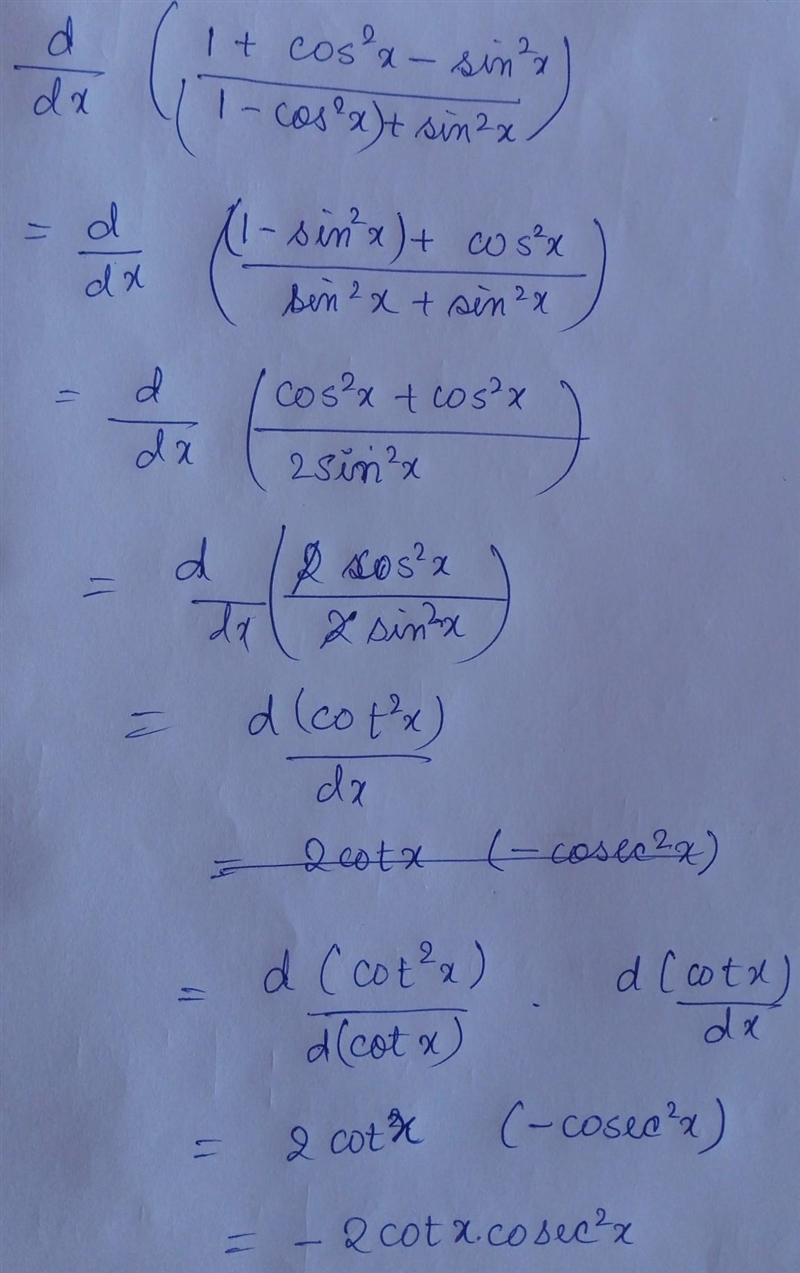 d/dx ( (1 + cos²x − sin²x) / (1 − cos²x) + sin²x )
= d/dx ( ((1 − sin²x) + cos²x) / (sin²x + sin²x) )
= d/dx ( (cos²x + cos²x) / (2 sin²x) )
= d/dx ( (2 cos²x) / (2 sin²x) )
= d(cot²x)/dx
= 2 cot x (− cosec²x)
= d(cot²x)/d(cot x) · d(cot x)/dx
= 2 cot x (− cosec²x)
= − 2 cot x . cosec²x